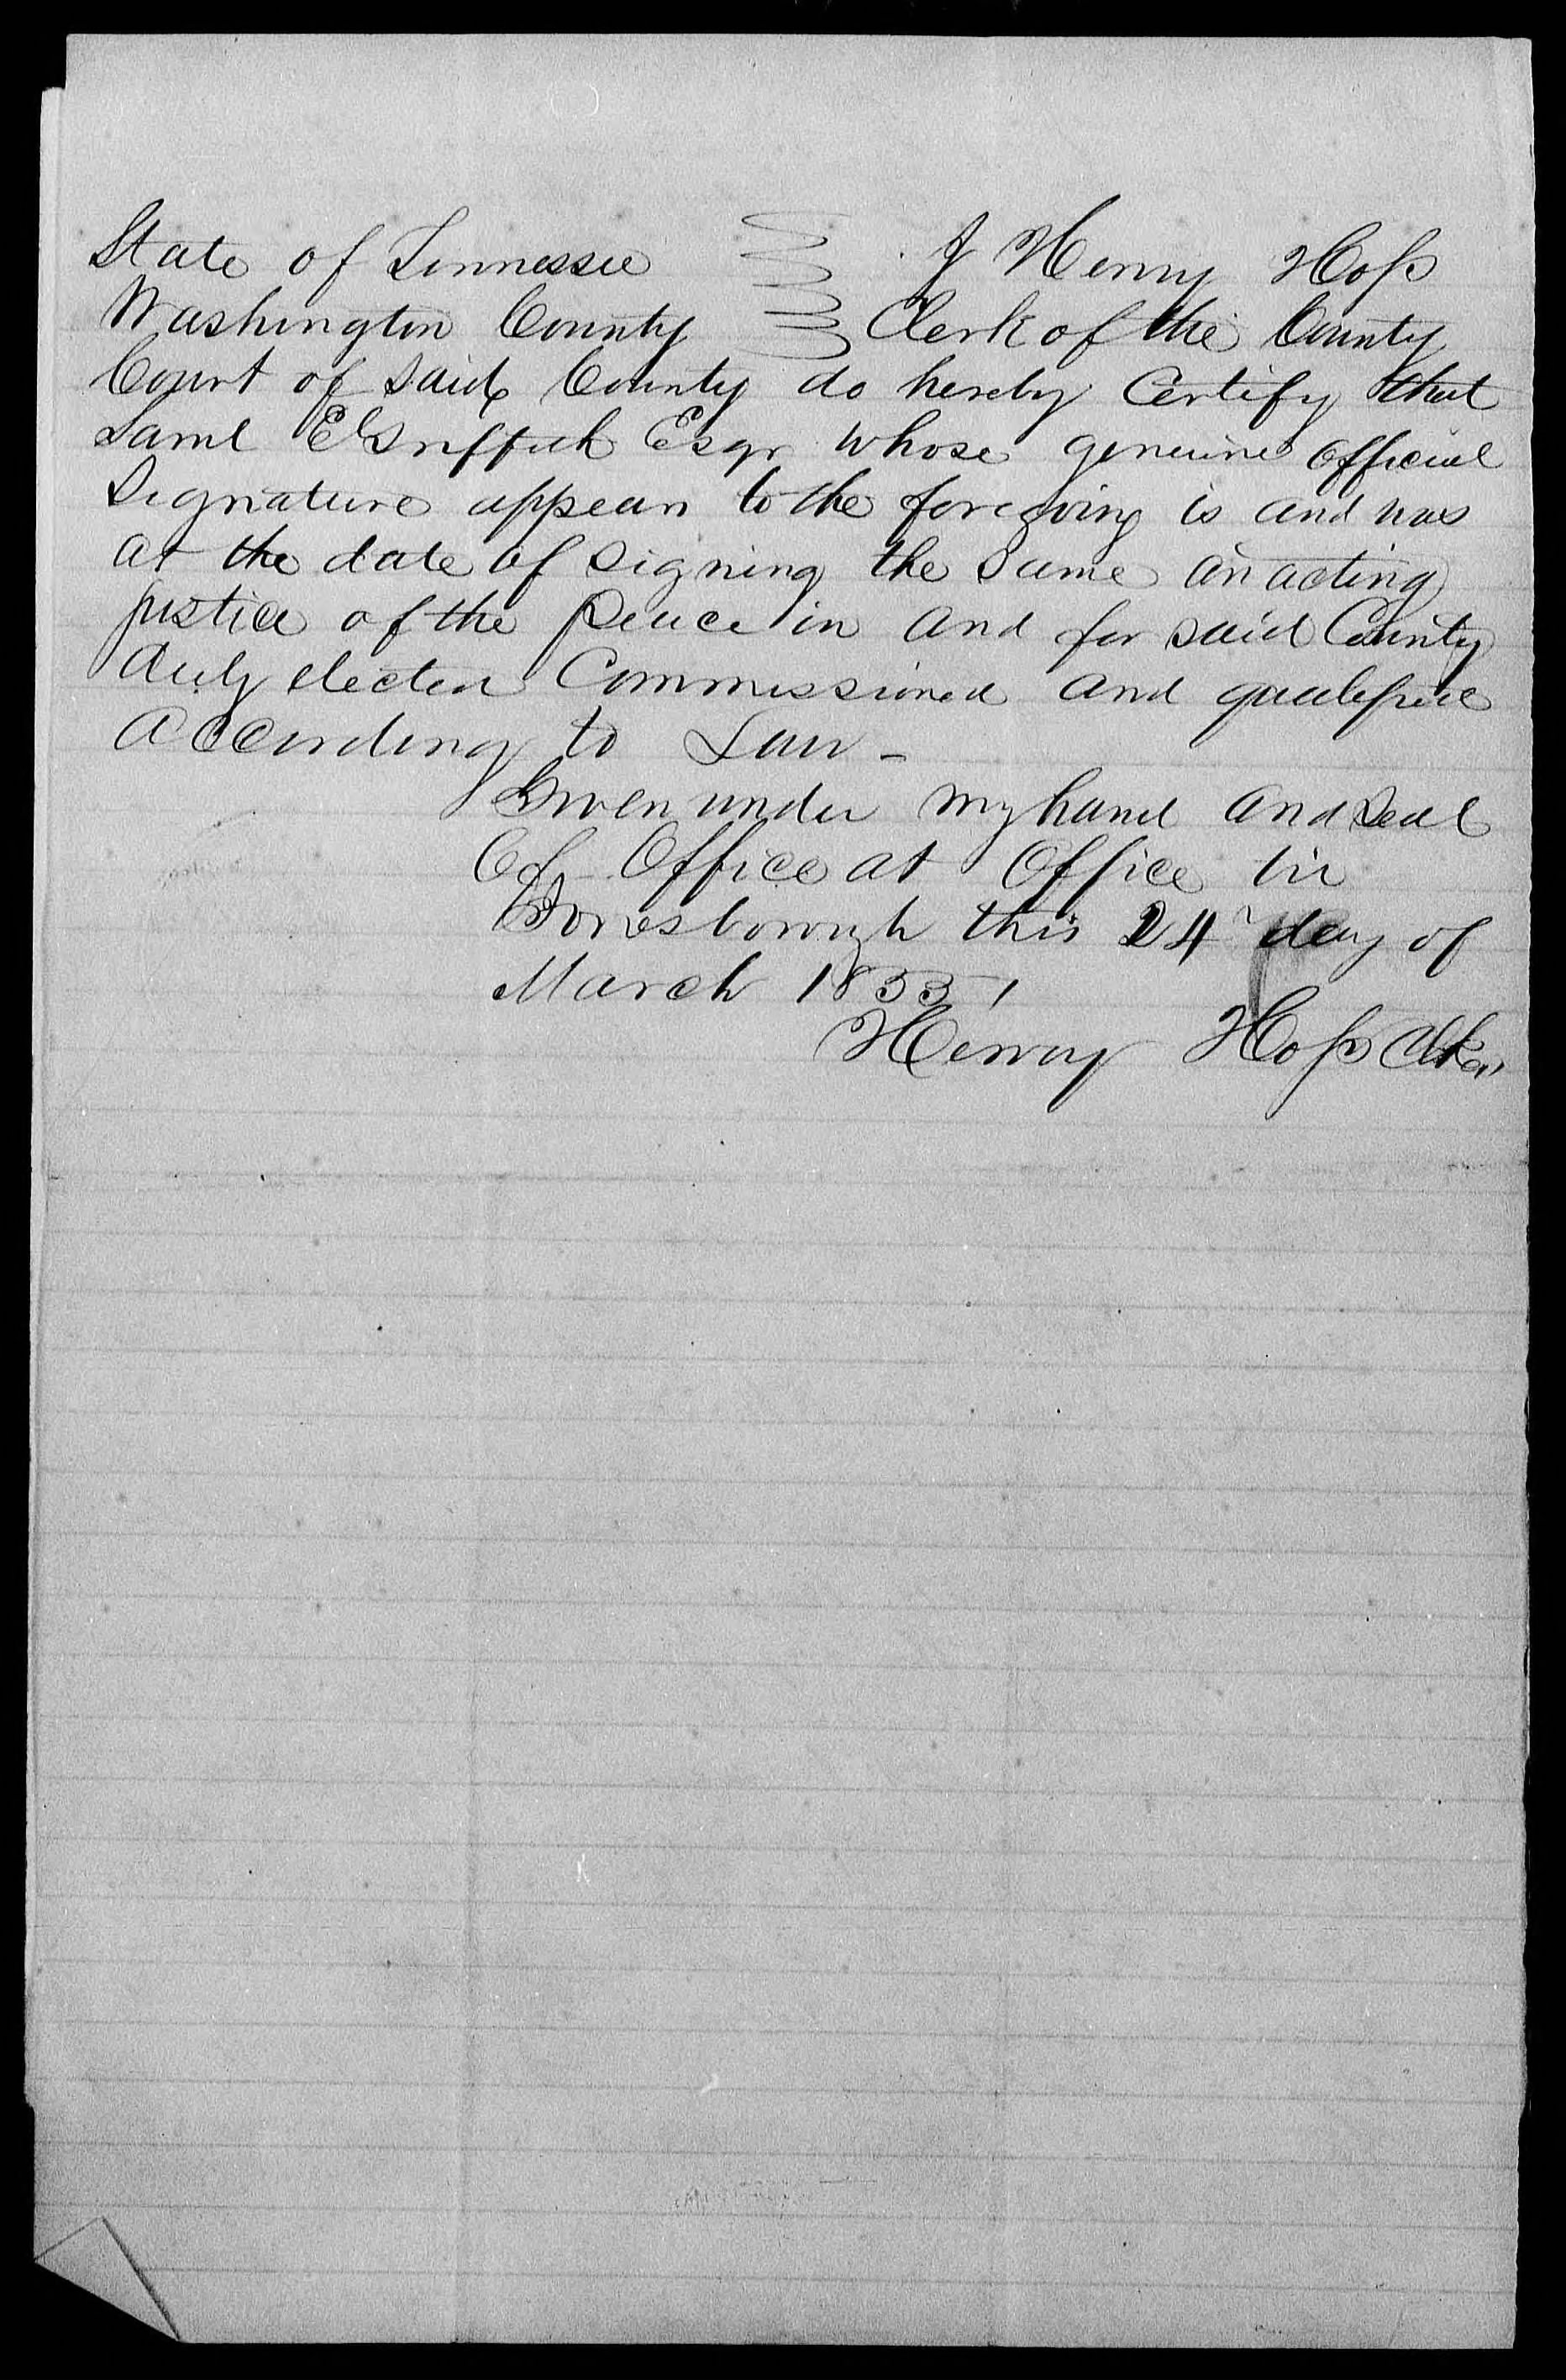 State of Tennessee I Henry Hoss
Washington County Clerk of the County
Court of said County do hereby Certify that
Saml E Griffith Esqr whose genuine official
Signature appears to the foregoing is and was
at the date of signing the same an acting
justice of the peace in and for said County
duly elected Commissioned and qualified
according to Law -
Given under my hand and seal
Of Office at Office in
Jonesborough this 24 day of
March 1853
Henry Hoss Clk